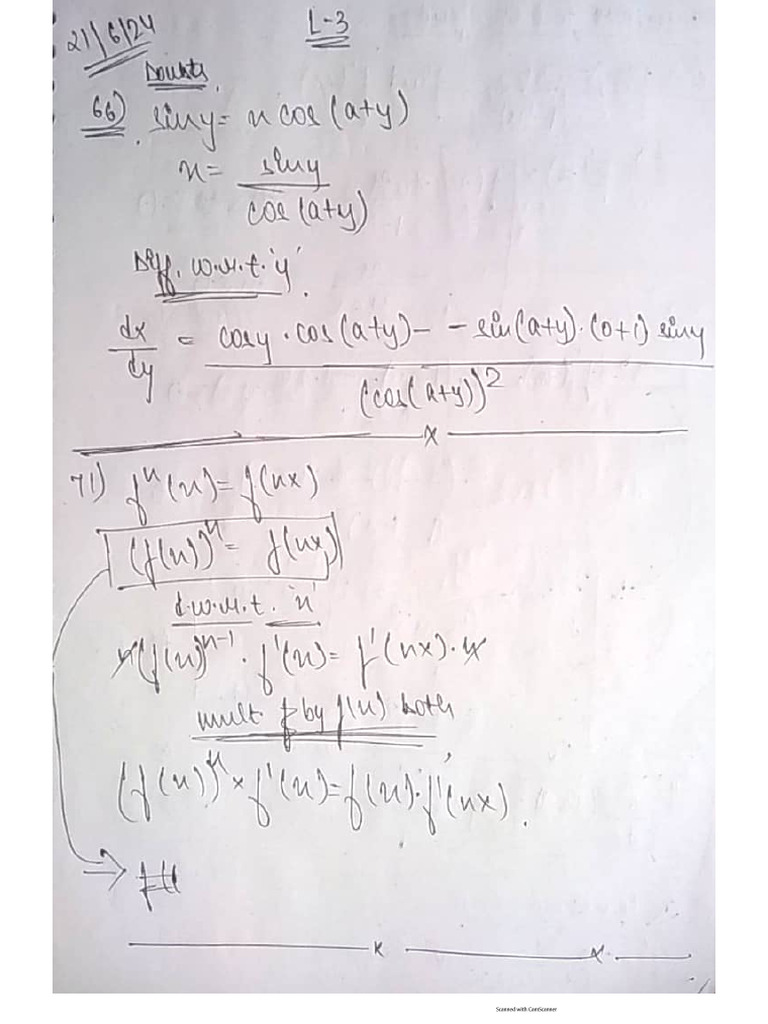 21/6/24
L-3
Doubts
66) siny = x cos(a+y)
x = siny / cos(a+y)
Diff. w.r.t. 'y'.
dx/dy = cosy . cos(a+y) - - sin(a+y) . (0+1) siny / (cos(a+y))²
x
71) fⁿ(x) = f(nx)
(f(x))ⁿ = f(nx)
d.w.r.t. 'x'
n(f(x))ⁿ⁻¹ . f'(x) = f'(nx) . n
mult. by f(x) both
(f(x))ⁿ × f'(x) = f(x) . f'(nx).
x x
Scanned with CamScanner